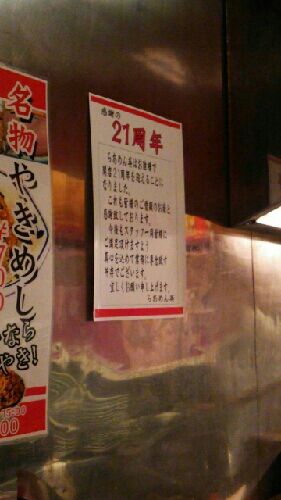 名物
やきめし
なら
やき!
15:00
00
感謝の
21周年
らあめん英はお陰様で
開店21周年を迎えることに
なりました。
これも皆様のご愛顧のお陰と
感謝致しております。
今後もスタッフ一同皆様に
ご満足頂けますよう
真心を込めて業務に専念致す
所存でございます。
宜しくお願い申し上げます。